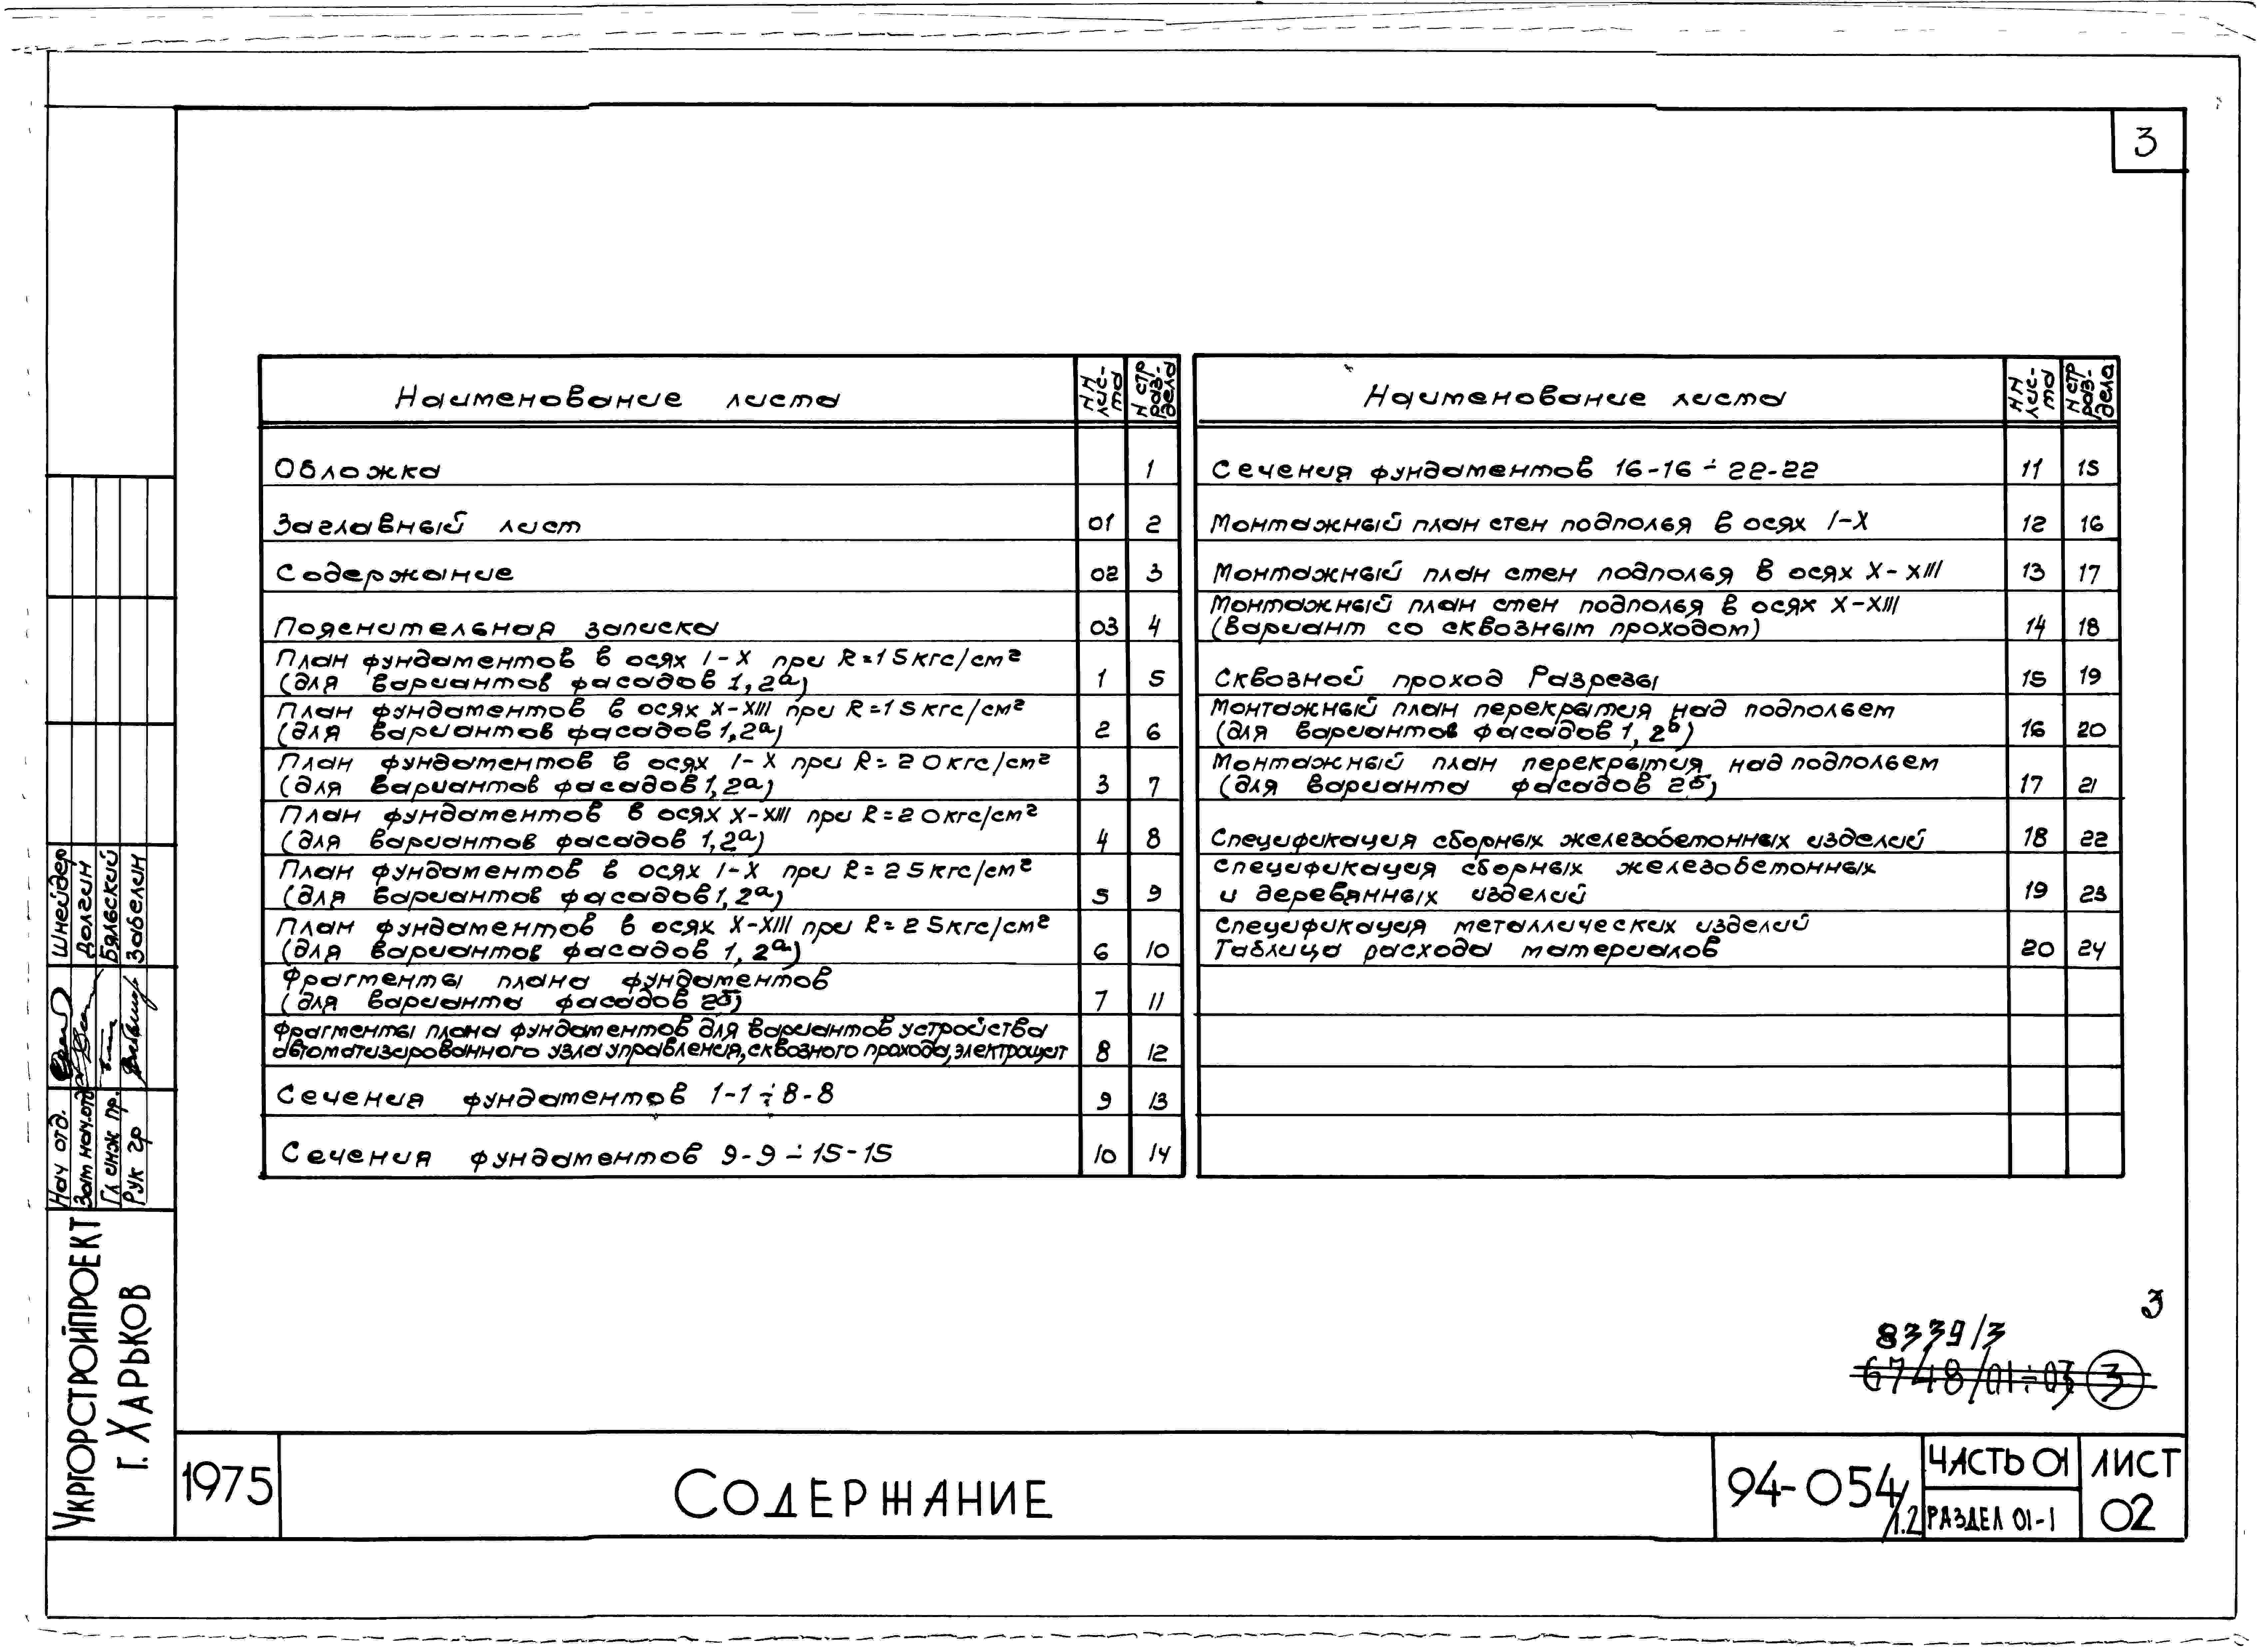 3
Наименование листа
НН лис-та
Н стр раз-дела
Обложка 1
Заглавный лист 01 2
Содержание 02 3
Пояснительная записка 03 4
План фундаментов в осях I-X при R=15кгс/см²
(для вариантов фасадов 1, 2а) 1 5
План фундаментов в осях X-XIII при R=15кгс/см²
(для вариантов фасадов 1, 2а) 2 6
План фундаментов в осях I-X при R=20кгс/см²
(для вариантов фасадов 1, 2а) 3 7
План фундаментов в осях X-XIII при R=20кгс/см²
(для вариантов фасадов 1, 2а) 4 8
План фундаментов в осях I-X при R=25кгс/см²
(для вариантов фасадов 1, 2а) 5 9
План фундаментов в осях X-XIII при R=25кгс/см²
(для вариантов фасадов 1, 2а) 6 10
Фрагменты плана фундаментов
(для варианта фасадов 2б) 7 11
Фрагменты плана фундаментов для вариантов устройства
автоматизированного узла управления, сквозного прохода, электрощит 8 12
Сечения фундаментов 1-1÷8-8 9 13
Сечения фундаментов 9-9÷15-15 10 14
Наименование листа
НН лис-та
Н стр раз-дела
Сечения фундаментов 16-16÷22-22 11 15
Монтажный план стен подполья в осях I-X 12 16
Монтажный план стен подполья в осях X-XIII 13 17
Монтажный план стен подполья в осях X-XIII
(вариант со сквозным проходом) 14 18
Сквозной проход Разрезы 15 19
Монтажный план перекрытия над подпольем
(для вариантов фасадов 1, 2а) 16 20
Монтажный план перекрытия над подпольем
(для варианта фасадов 2б) 17 21
Спецификация сборных железобетонных изделий 18 22
Спецификация сборных железобетонных
и деревянных изделий 19 23
Спецификация металлических изделий
Таблица расхода материалов 20 24
Нач отд. Шнейдер
Зам нач.отд Долгин
Гл инж пр. Бяльский
Рук гр Забелин
Укргорстройпроект
г. Харьков
3
8339/3
6748/01÷03 3
1975
Содержание
94-054/1.2
Часть 01
Раздел 01-1
Лист
02